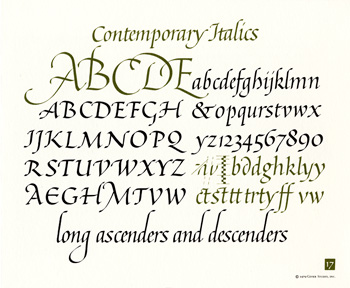 Contemporary Italics
ABCDE abcdefghijklmn
ABCDEFGH &opqurstvwx
IJKLMNOPQ yz1234567890
RSTUVWXYZ bddghklyy
AEGHMTVW ctstttrtyff vw
long ascenders and descenders
17